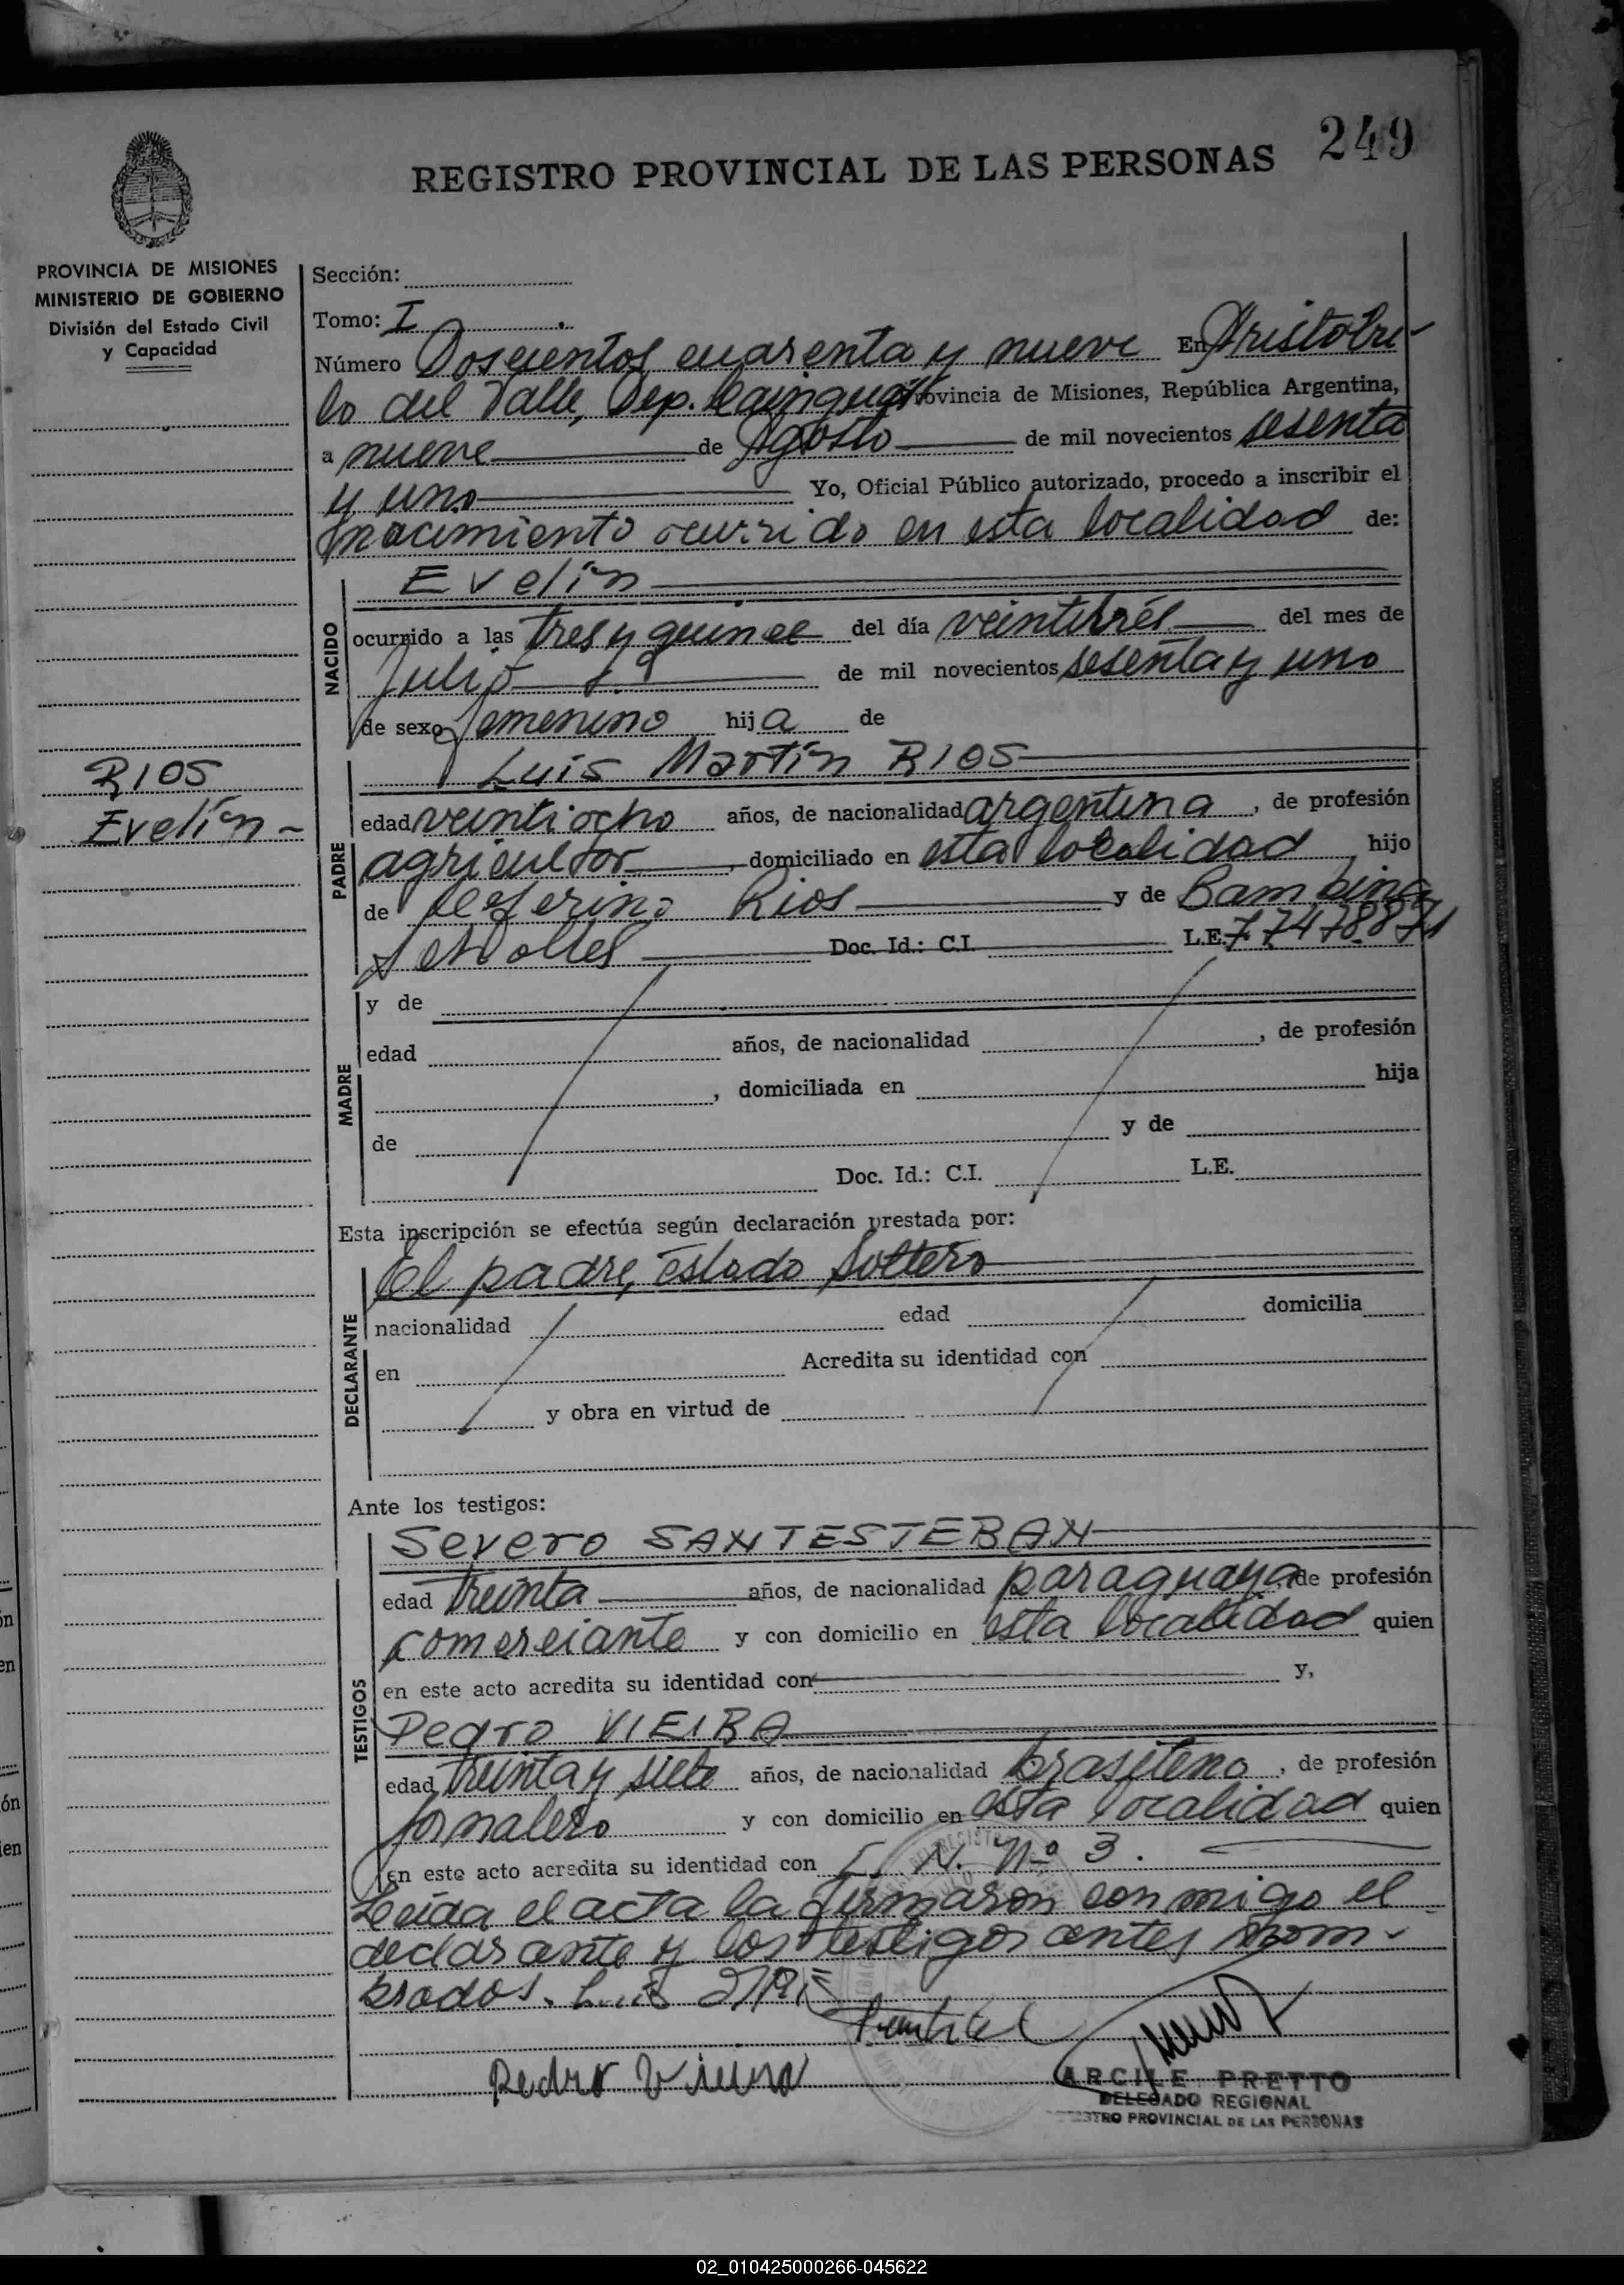 249
REGISTRO PROVINCIAL DE LAS PERSONAS
PROVINCIA DE MISIONES
MINISTERIO DE GOBIERNO
División del Estado Civil
y Capacidad
Sección:
Tomo: I
Número Doscientos cuarenta y nueve En Aristobu-
lo del Valle, Dep. Cainguas Provincia de Misiones, República Argentina,
a nueve de Agosto de mil novecientos sesenta
y uno Yo, Oficial Público autorizado, procedo a inscribir el
nacimiento ocurrido en esta localidad de:
NACIDO
Evelín
ocurrido a las tres y quince del día veintitrés del mes de
Julio de mil novecientos sesenta y uno
de sexo femenino hija de
RIOS
Evelín -
PADRE
Luis Martín RIOS
edad veintiocho años, de nacionalidad argentina, de profesión
agricultor, domiciliado en esta localidad, hijo
de Seferino Rios y de Bambina
Doc. Id.: C.I. L.E.
MADRE
y de
edad años, de nacionalidad , de profesión
, domiciliada en hija
de y de
Doc. Id.: C.I. L.E.
Esta inscripción se efectúa según declaración prestada por:
DECLARANTE
El padre, estado soltero
nacionalidad edad domicilia
en Acredita su identidad con
y obra en virtud de
Ante los testigos:
TESTIGOS
Severo SANTESTEBAN
edad treinta años, de nacionalidad paraguaya, de profesión
comerciante y con domicilio en esta localidad quien
en este acto acredita su identidad con y,
Pedro VIEIRA
edad treinta y siete años, de nacionalidad brasileña, de profesión
jornalero y con domicilio en esta localidad quien
en este acto acredita su identidad con N. Nº 3.
Leída el acta la firmaron conmigo el
declarante y los testigos antes nom-
brados. Luis
Pedro Vieira
ARCILE PRETTO
DELEGADO REGIONAL
REGISTRO PROVINCIAL DE LAS PERSONAS
02_010425000266-045622